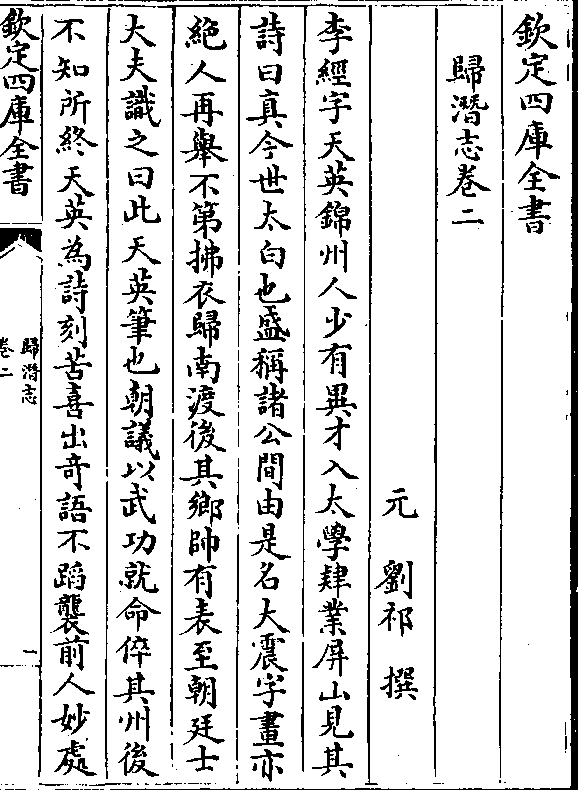 欽定四庫全書
歸潛志卷二
元 劉祁 撰
李經字天英錦州人少有異才入太學肄業屏山見其
詩曰真今世太白也盛稱諸公間由是名大震字畫亦
絶人再舉不第拂衣歸南渡後其鄉帥有表至朝廷士
大夫識之曰此天英筆也朝議以武功就命倅其州後
不知所終天英為詩刻苦喜出奇語不蹈襲前人妙處
欽定四庫全書
歸潛志
卷二
一